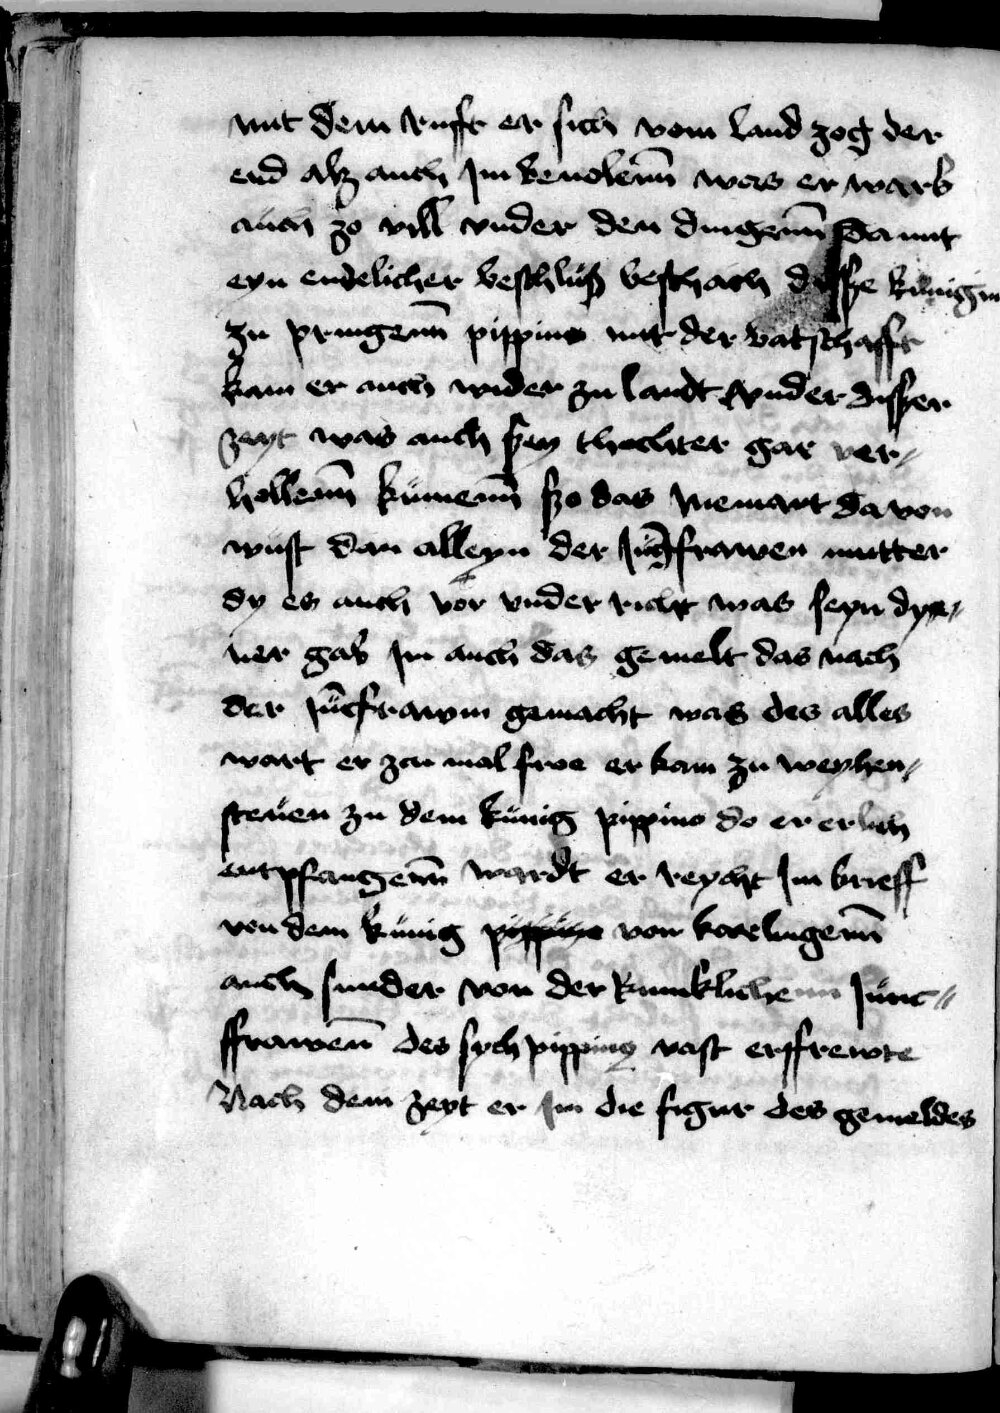 mit dem rufft er sich vom land zog der
end alz auch Im bevolenn was er warb
auch zo vill vnder den dingenn damit
eyn endelicher beschlusz beschach disze kunigin
zu pringenn pippino mit der batschafft
kam er auch wider zu landt vnder diszer
zeyt was auch szein thochter gar ver-
hollenn kumenn szo das niemant davon
wust dan alleyn der Junckfrawen mutter
dy es auch vor vnder richt was seyn dye-
ner gab Im auch das gemelt das nach
der Junckfrawm gemacht was des alles
wart er zu mal froe er kam zu weyhen-
steuen zu dem kunig pippino do er erlich
entpfangenn wardt er reycht Im brieff
von dem kunig pippino von karlingenn
auch sunder von der kunklichenn Junc-
ffrawenn des sych pippinus vast erffrewte
Nach dem zeyt er Im die figur des gemeldes